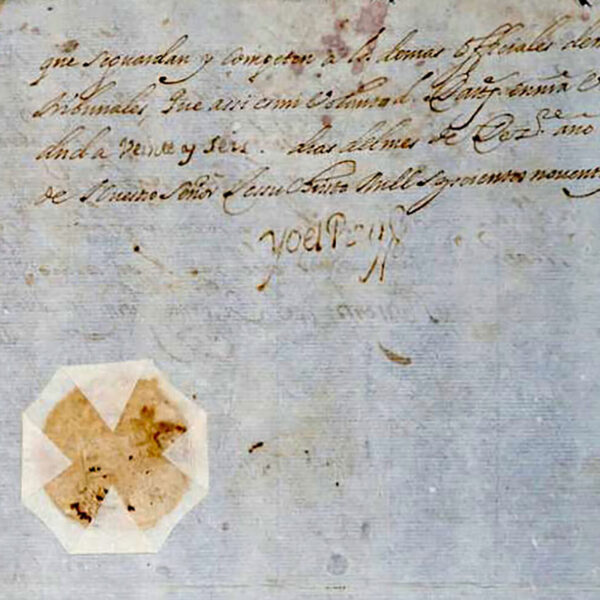 que se guardan y competen a los demas officiales de
tribunales, Que assi es mi Voluntad. Dat. en nra
dad a veinte y seis dias del mes de Dez.re año
de Nuestro Señor Jesu Christo Mill seyscientos noventa
Yo el Rey